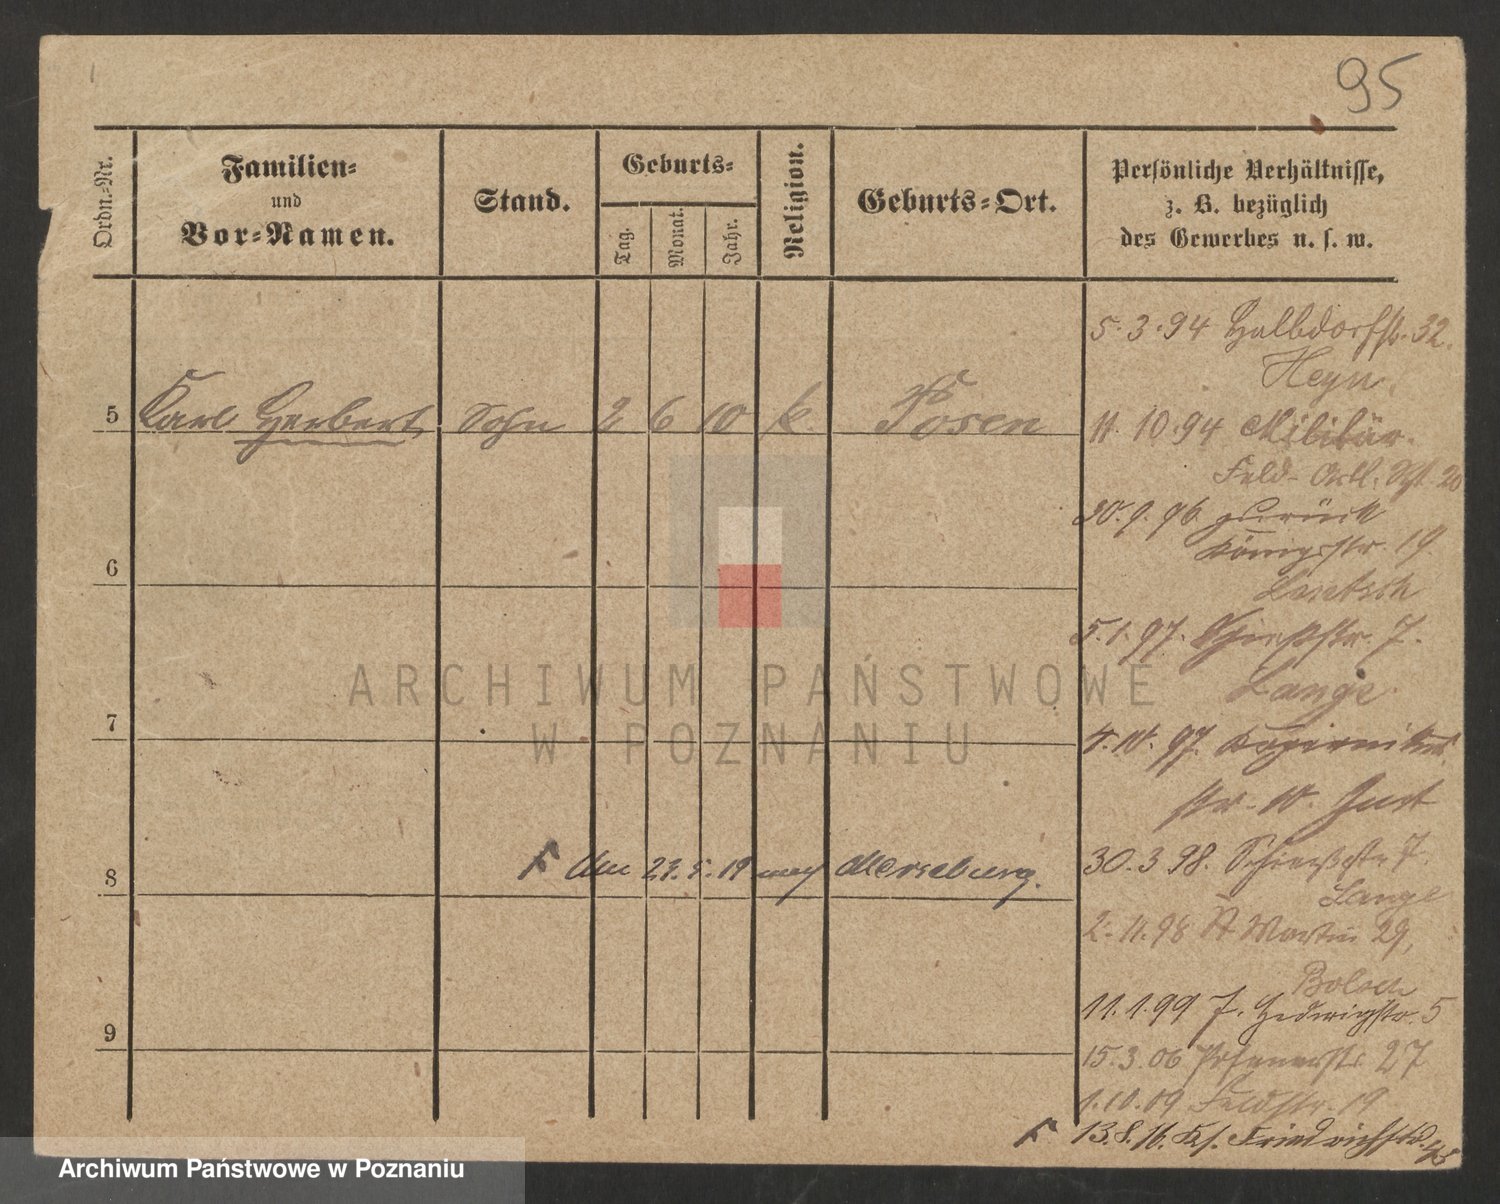 95
Ordn.-Nr.
Familien-
und
Vor-Namen.
Stand.
Geburts-
Tag.
Monat.
Jahr.
Religion.
Geburts-Ort.
Persönliche Verhältnisse,
z. B. bezüglich
des Gewerbes u. s. w.
5. 3. 94 Halbdorfstr. 32.
Heyn.
5 Karl Herbert Sohn 2 6 10 k. Posen
11. 10. 94 Militär.
Feld- Artl. Rgt. 20
30. 9. 96 zurück
Königsstr. 19
6
5. 1. 97. Schießstr. 7.
Lange
7
4. 10. 97. Kopernikus
str. 10. Just
8
F Am 23. 5. 19 nach Merseburg.
30. 3. 98. Schießstr 7.
Lange
2. 11. 98 St Martin 29,
11. 1. 99 F. Hedwigstr. 5
9
15. 3. 06 Posenerstr. 27
1. 10. 09 Feldstr. 19
F 13. 8. 16. Ks. Friedrichstr.
ARCHIWUM PAŃSTWOWE
W POZNANIU
Archiwum Państwowe w Poznaniu